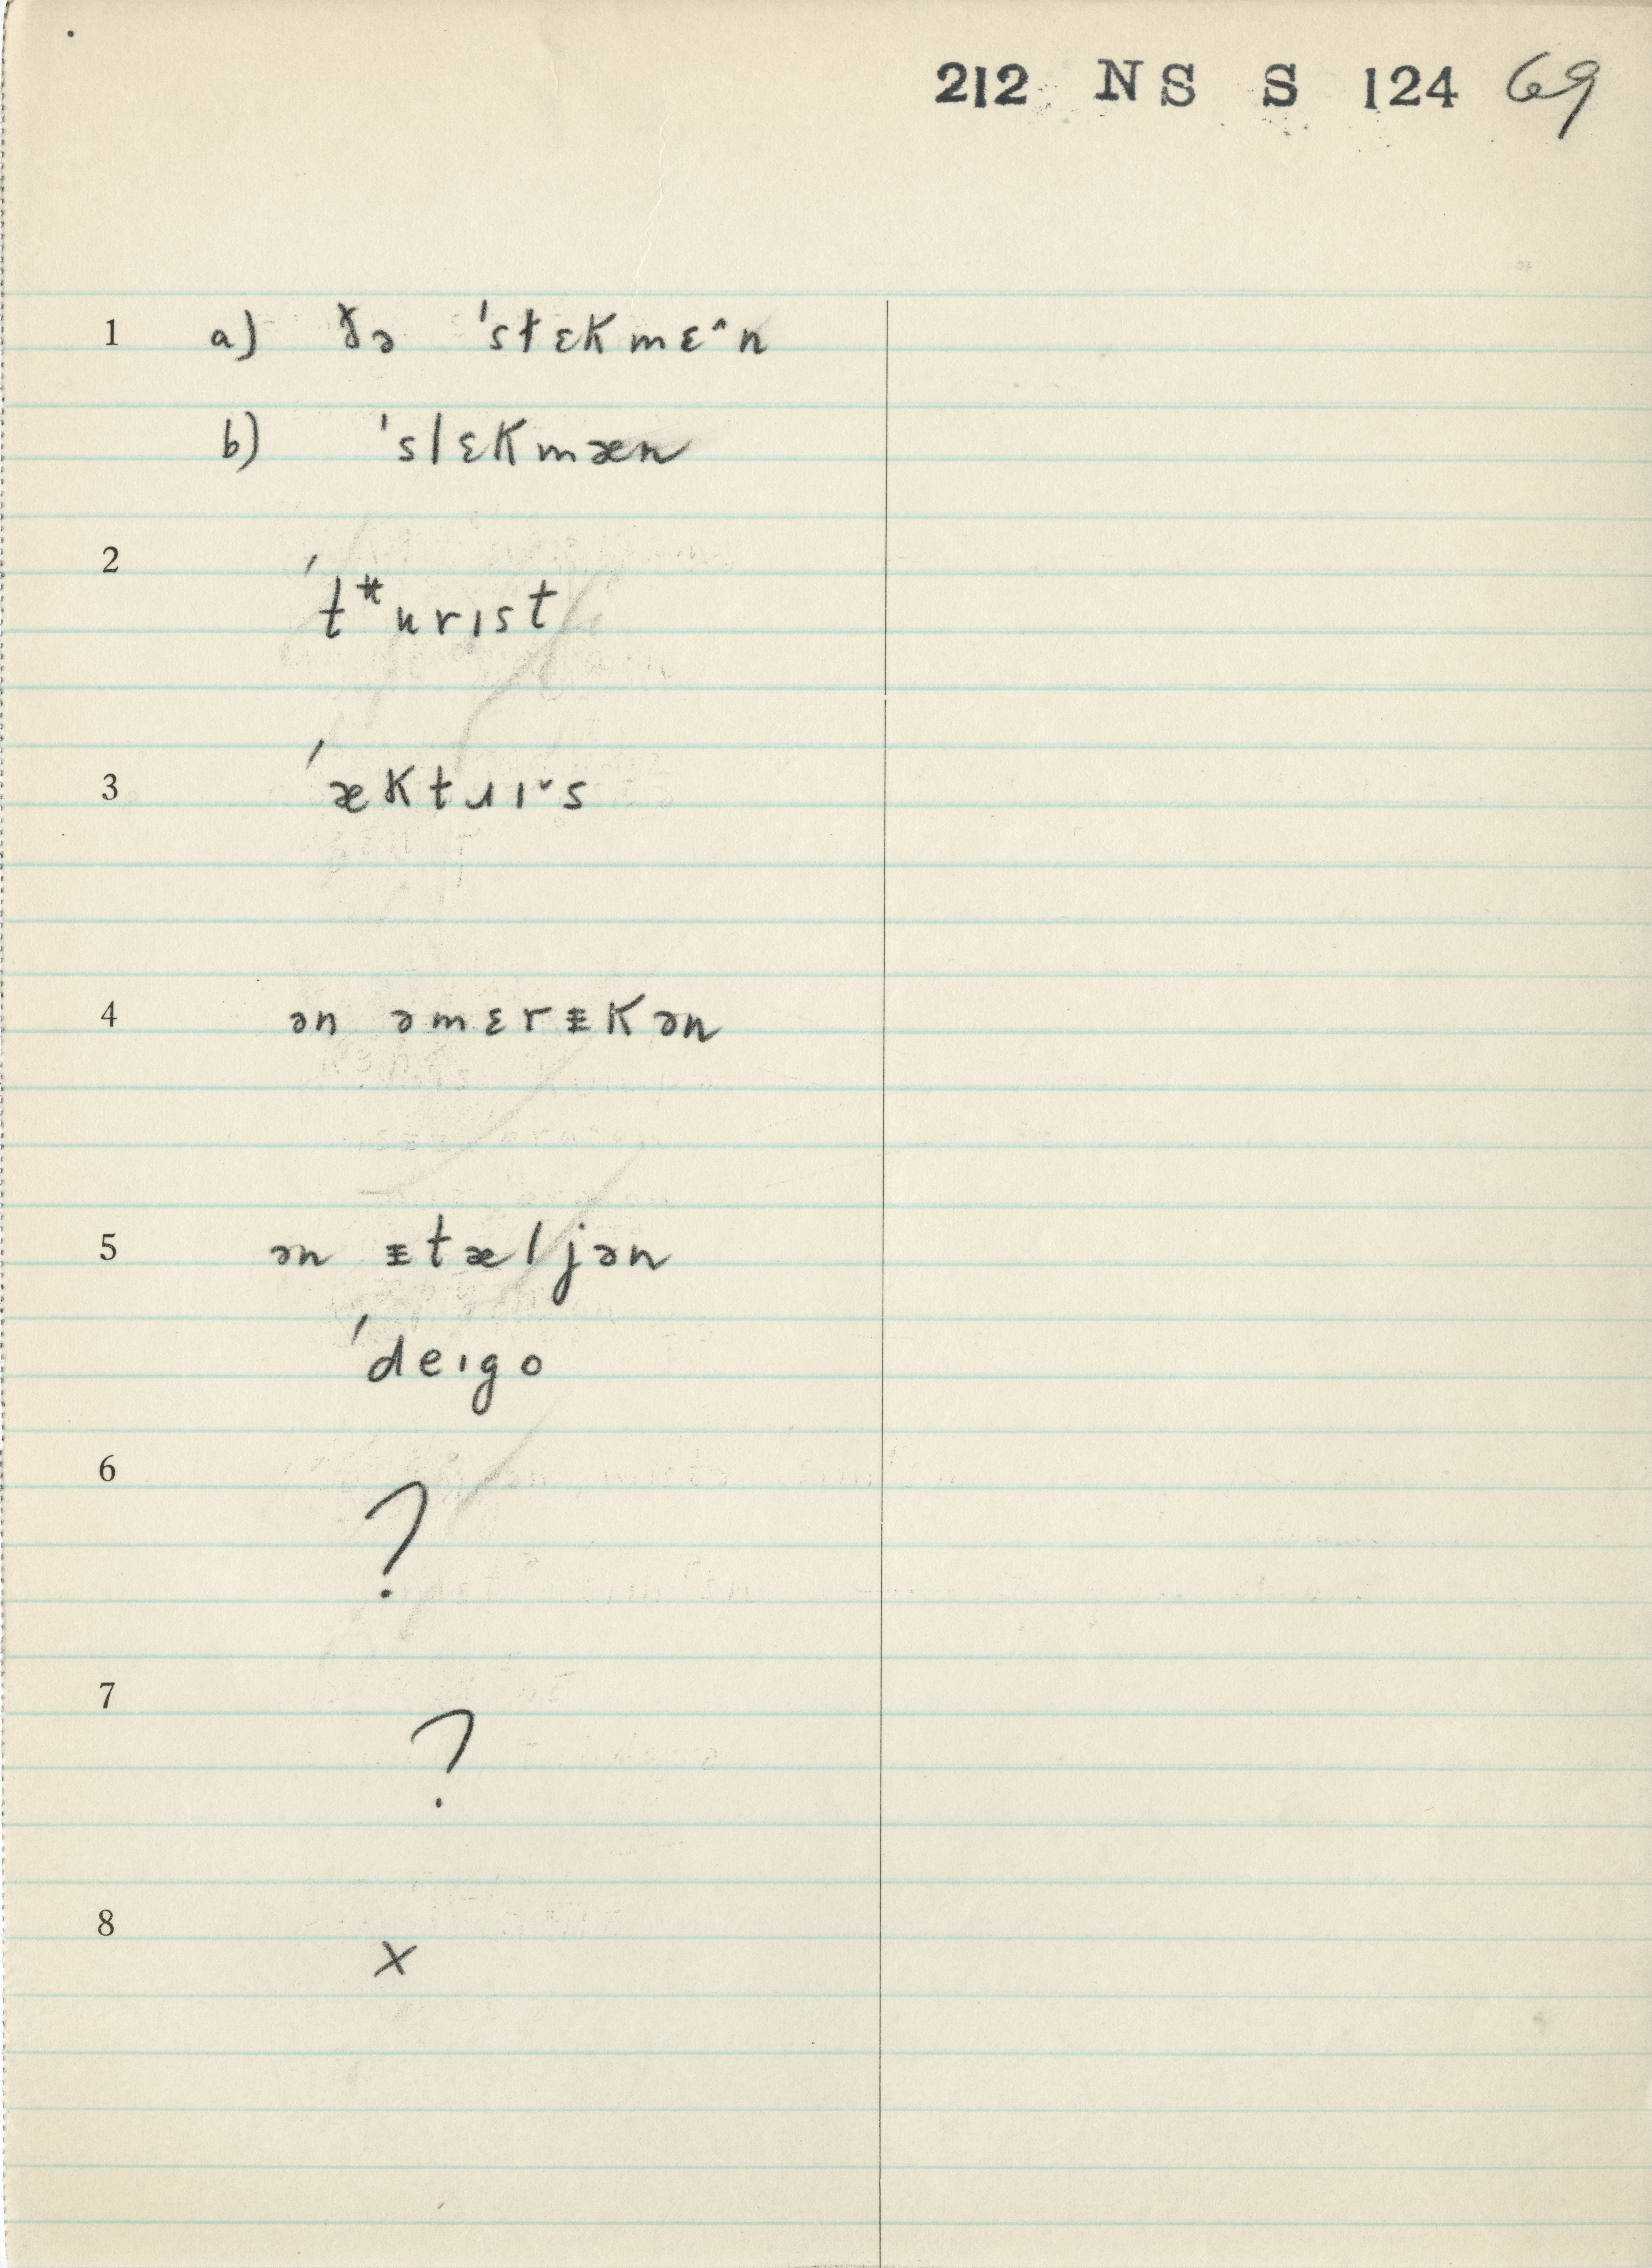 212 NS S 124 69
1 a) ɤə 'stɛKmɛ^n
b) 'slɛKmæn
2
't*urɪst
3 'æKtɹɪˇs
4 ən əmɛrᵻKən
5 ən ᵻtæljən
'deɪgo
6
?
7
?
8
x